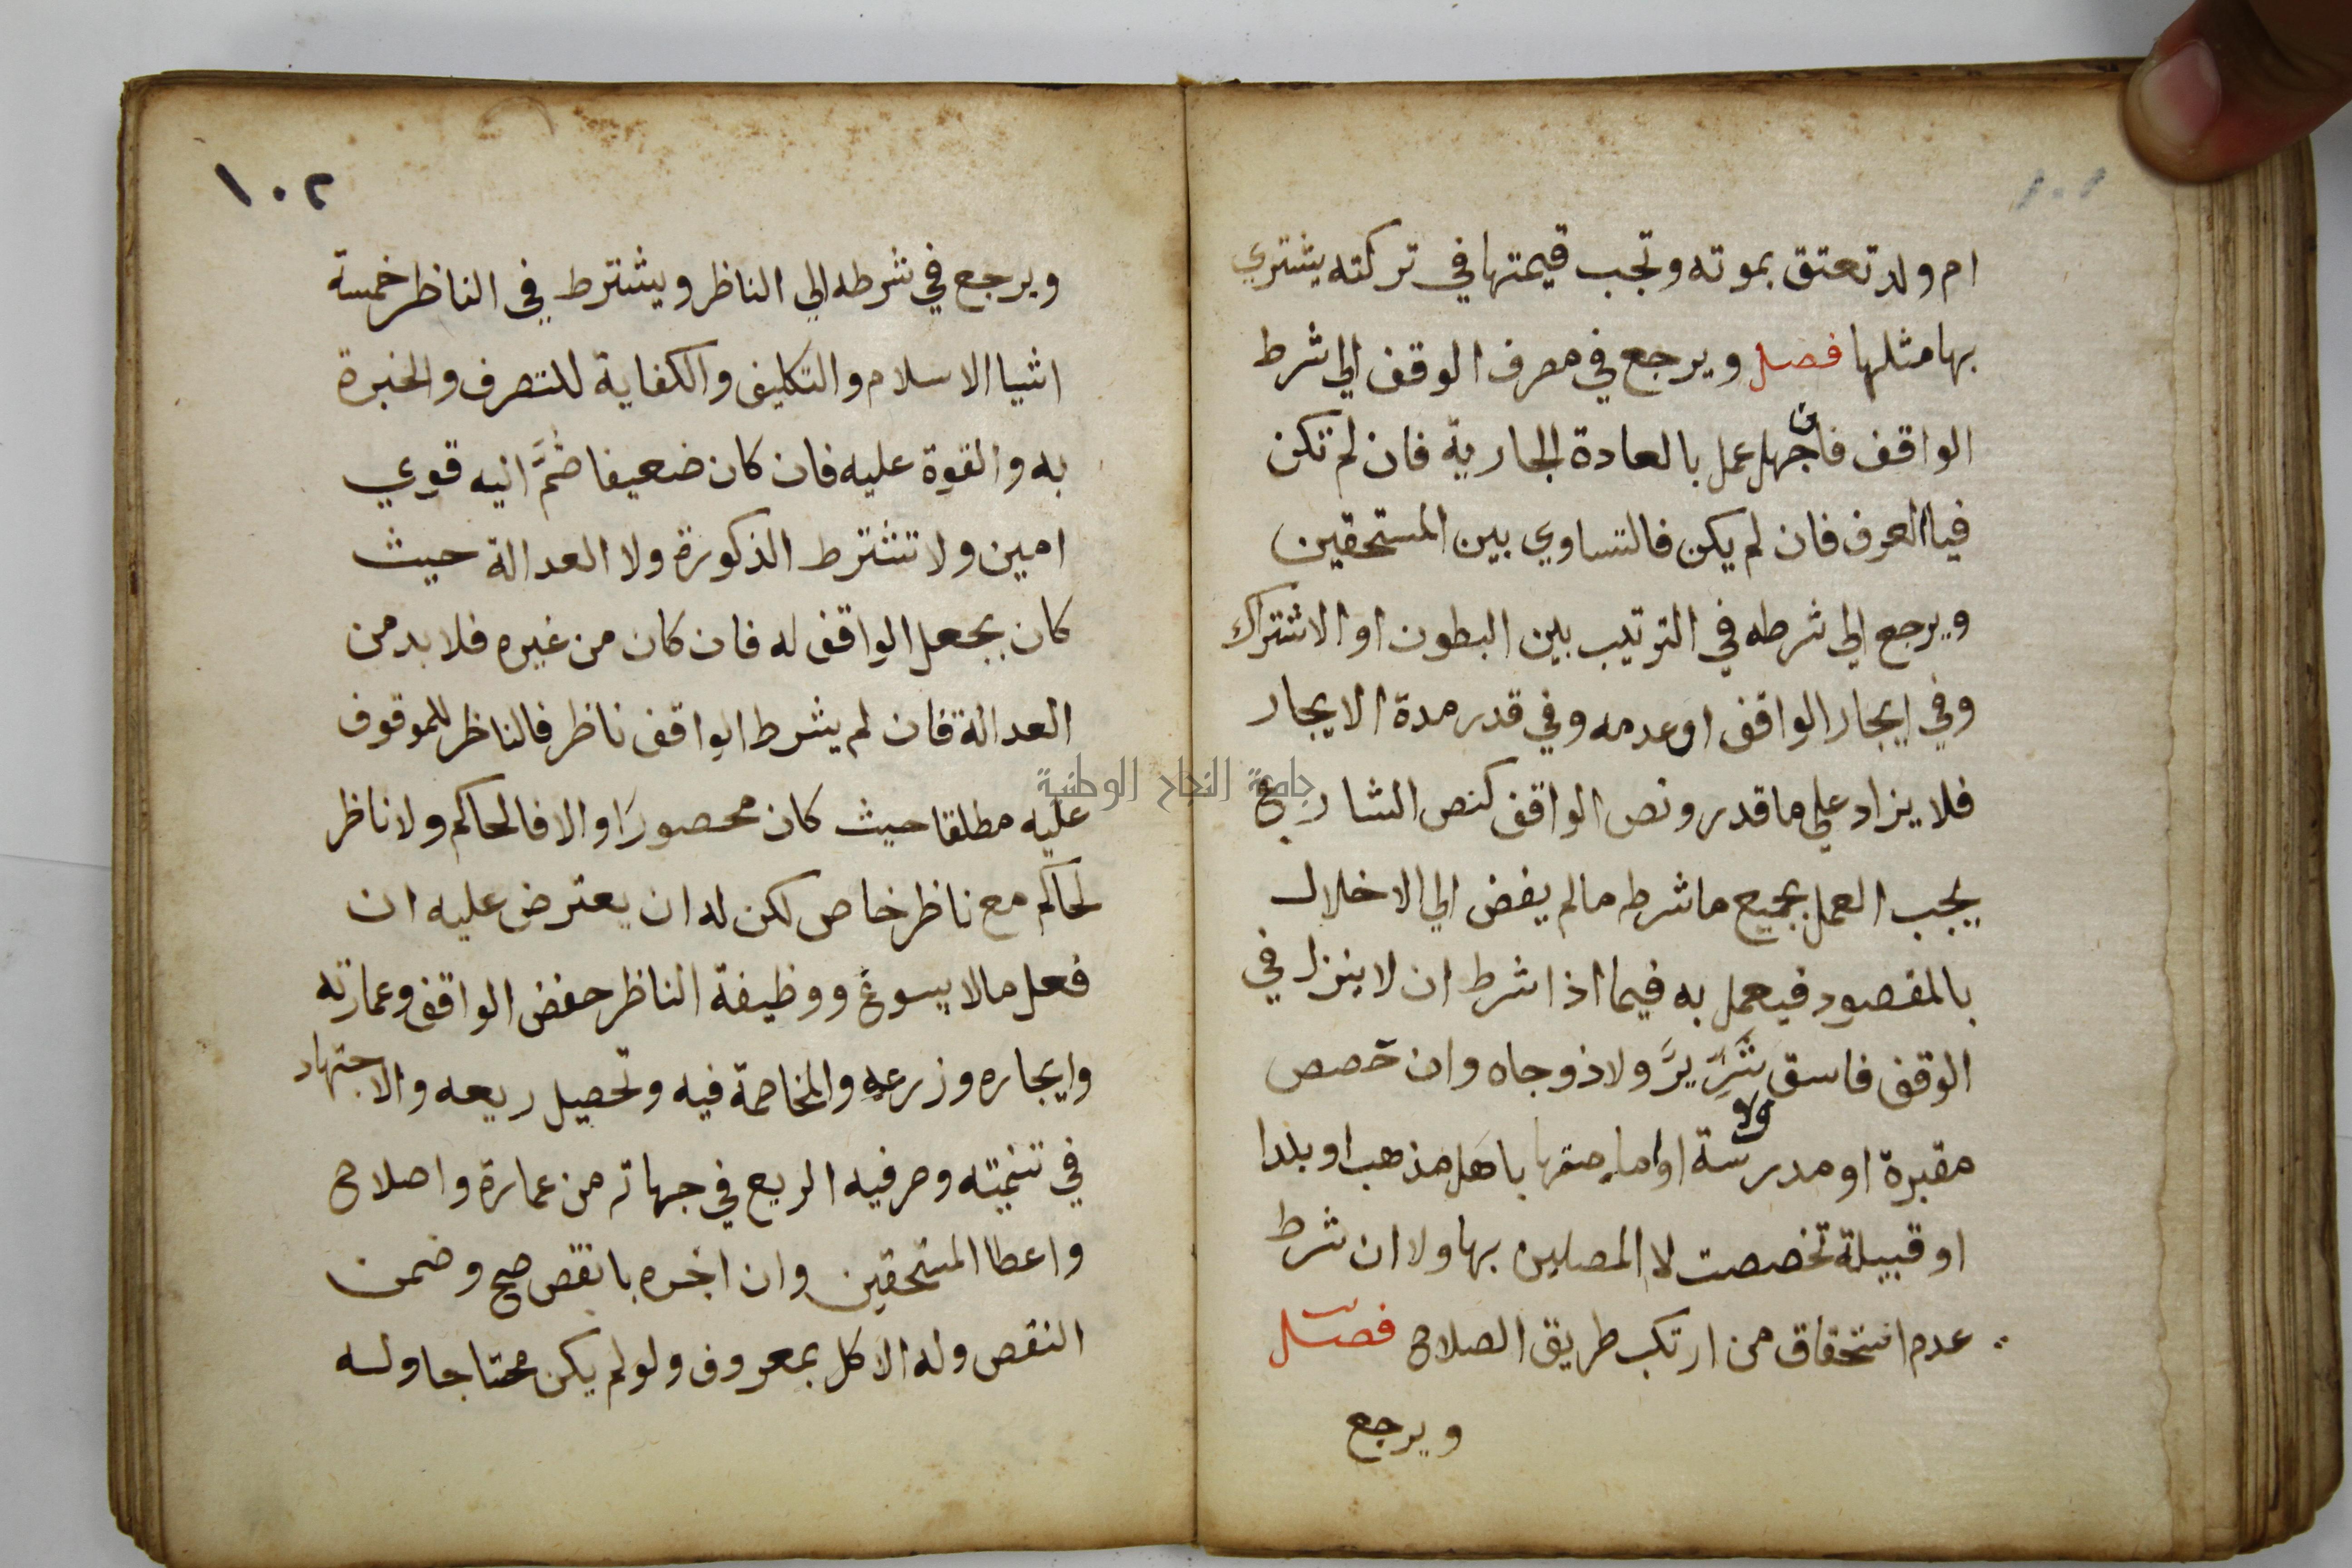 ١٠١
ام ولد تعتق بموته وتجب قيمتها في تركته يشتري
بها مثلها فصل ويرجع في مصرف الوقف الي شرط
الواقف فان جهل عمل بالعادة الجارية فان لم تكن
فبالعرف فان لم يكن فالتساوي بين المستحقين
ويرجع الي شرطه في الترتيب بين البطون او الاشتراك
وفي ايجار الواقف او عدمه وفي قدر مدة الايجار
فلا يزاد علي ما قدر ونص الواقف كنص الشارع
يجب العمل بجميع ما شرطه ما لم يفض الي الاخلال
بالمقصود فيعمل به فيما اذا شرط ان لا ينزل في
الوقف فاسق شَرِّيرٌ ولا ذو جاه وان خصص
مقبرة او مدرسة او امامتها باهل مذهب او بلدا
ولا
او قبيلة تخصصت لا المصلين بها ولا ان شرط
عدم استحقاق من ارتكب طريق الصلاح فصل
ويرجع
١٠٢
ويرجع في شرطه الي الناظر ويشترط في الناظر خمسة
اشيا الاسلام والتكليف والكفاية للتصرف والخبرة
به والقوة عليه فان كان ضعيفا ضُمَّ اليه قوي
امين ولا تشترط الذكورة ولا العدالة حيث
كان بجعل الواقف له فان كان من غيره فلا بد من
العدالة فان لم يشرط الواقف ناظر فالناظر للموقوف
عليه مطلقا حيث كان محصورًا والا فالحاكم ولا ناظر
لحاكم مع ناظر خاص لكن له ان يعترض عليه ان
فعل ما لا يسوغ ووظيفة الناظر حفض الواقف وعمارته
وايجاره وزرعه والمخاصمة فيه وتحصيل ريعه والاجتهاد
في تنميته وصرفيه الريع في جهاته من عمارة واصلاح
واعطا المستحقين وان اجره بانقص صح وضمن
النقص وله الاكل بمعروف ولو لم يكن محتاجا وله
جامعة النجاح الوطنية